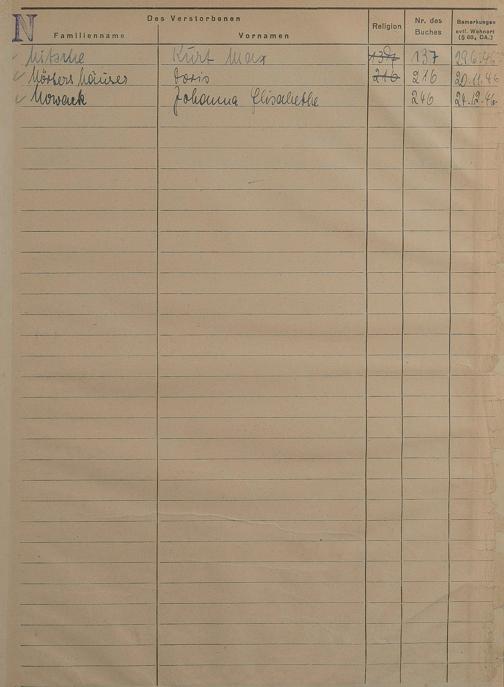 N
Des Verstorbenen
Familienname Vornamen Religion Nr. des Buches Bemerkungen evtl. Wohnort (§ 88, DA.)
Nitsche Kurt Max 137 137 29.6.46
Nörtershäuser Doris 216 216 20.11.46
Nowack Johanna Elisabethe 246 24.12.46